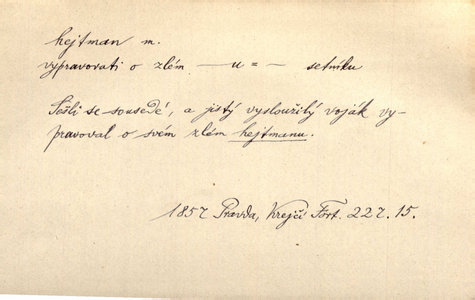 hejtman m.
vypravovati o zlém —u = — setníku
Sešli se sousedé, a jistý vysloužilý voják vy-
pravoval o svém zlém hejtmanu.
1857 Pravda, Krejčí Fort. 227. 15.